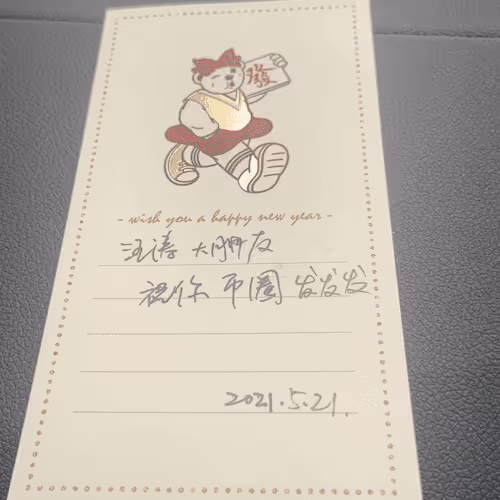 發
- wish you a happy new year -
汪涛 大朋友
祝你 币圈 发发发
2021.5.21.